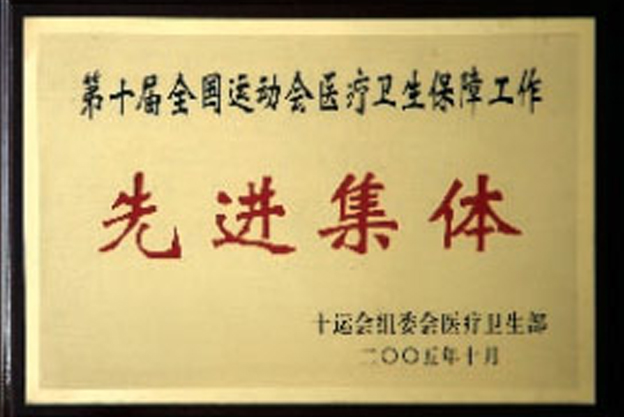 第十届全国运动会医疗卫生保障工作
先进集体
十运会组委会医疗卫生部
二〇〇五年十月